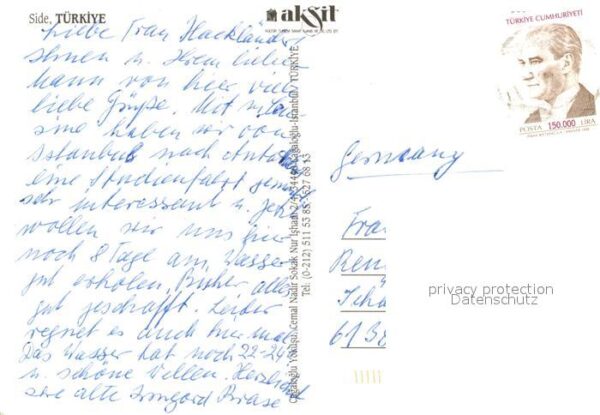 Side, TÜRKİYE
Liebe Frau Hackländer
Ihnen u. Ihrem lieben
Mann von hier viele
liebe Grüße. Mit
haben wir von
Istanbul nach
eine Studienfahrt gem.
sehr interessant u. jetzt
wollen wir uns hier
noch 8 Tage am Wasser
gut erholen. Bisher alles
gut geschafft. Leider
regnet es auch hier mal
Das Wasser hat noch 22-24
u. schöne Wellen. Herzlichst
Ihre alte Irmgard
akşit
Cağaloğlu Yokuşu, Cemal Nadir Sokak Nur İşhanı 2/4 34440 Cağaloğlu-İstanbul / TÜRKİYE
Tel: (0-212) 511 53 85 - 527 68 13
TÜRKİYE CUMHURİYETİ
POSTA 150.000 LİRA
Germany
Fra
Ren
Schö
6138
privacy protection
Datenschutz